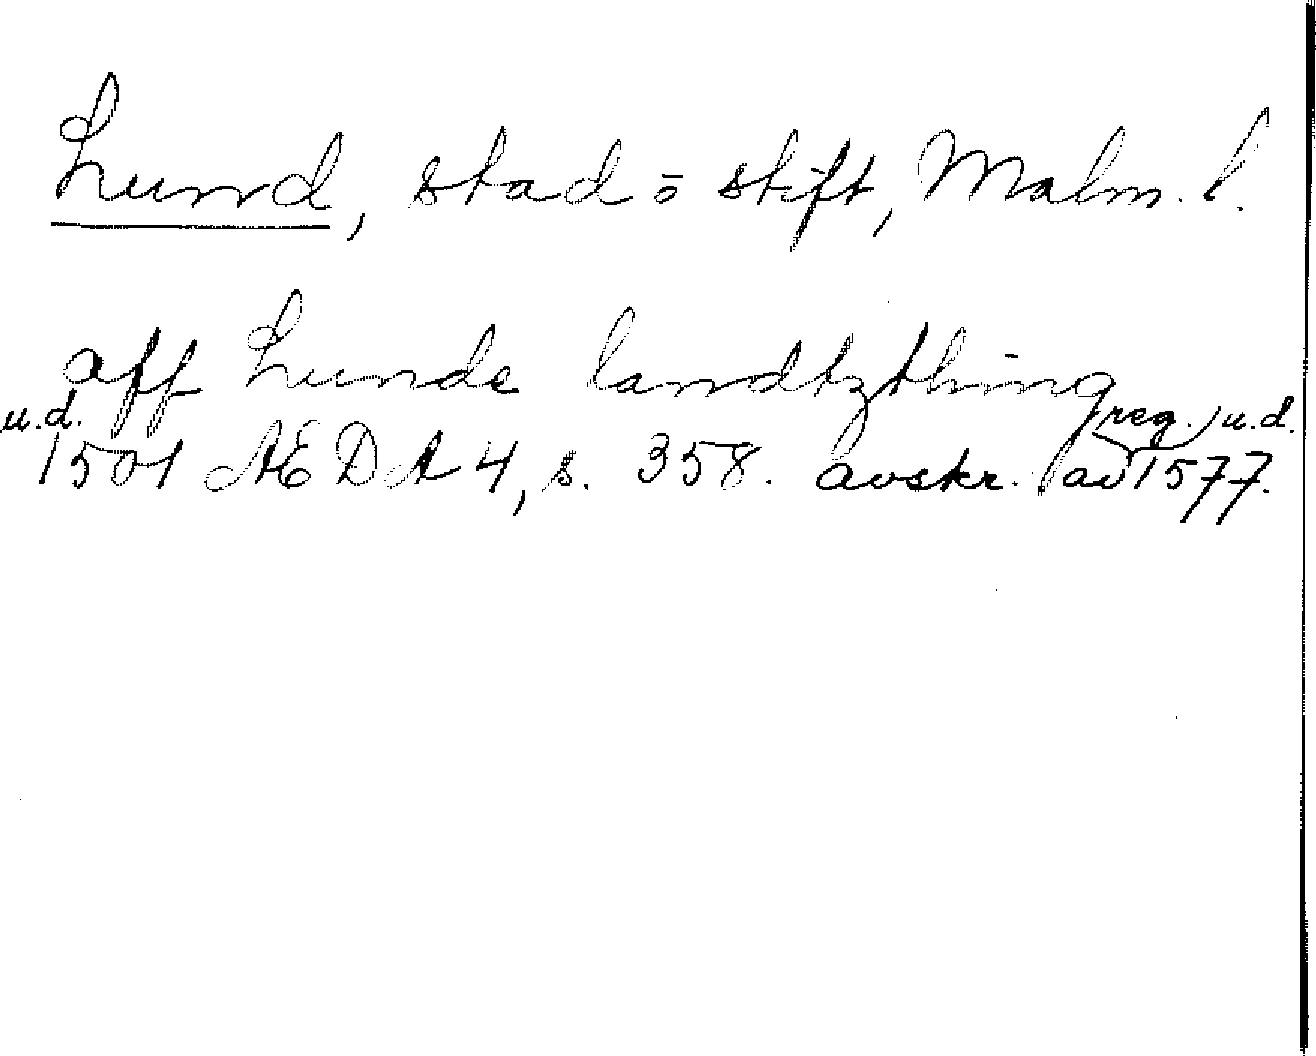 Lund, stad o stift, Malm. l.
aff Lunde landtzthing
u.d. 1501 ÆDA 4, s. 358. avskr. av reg. u.d. 1577.